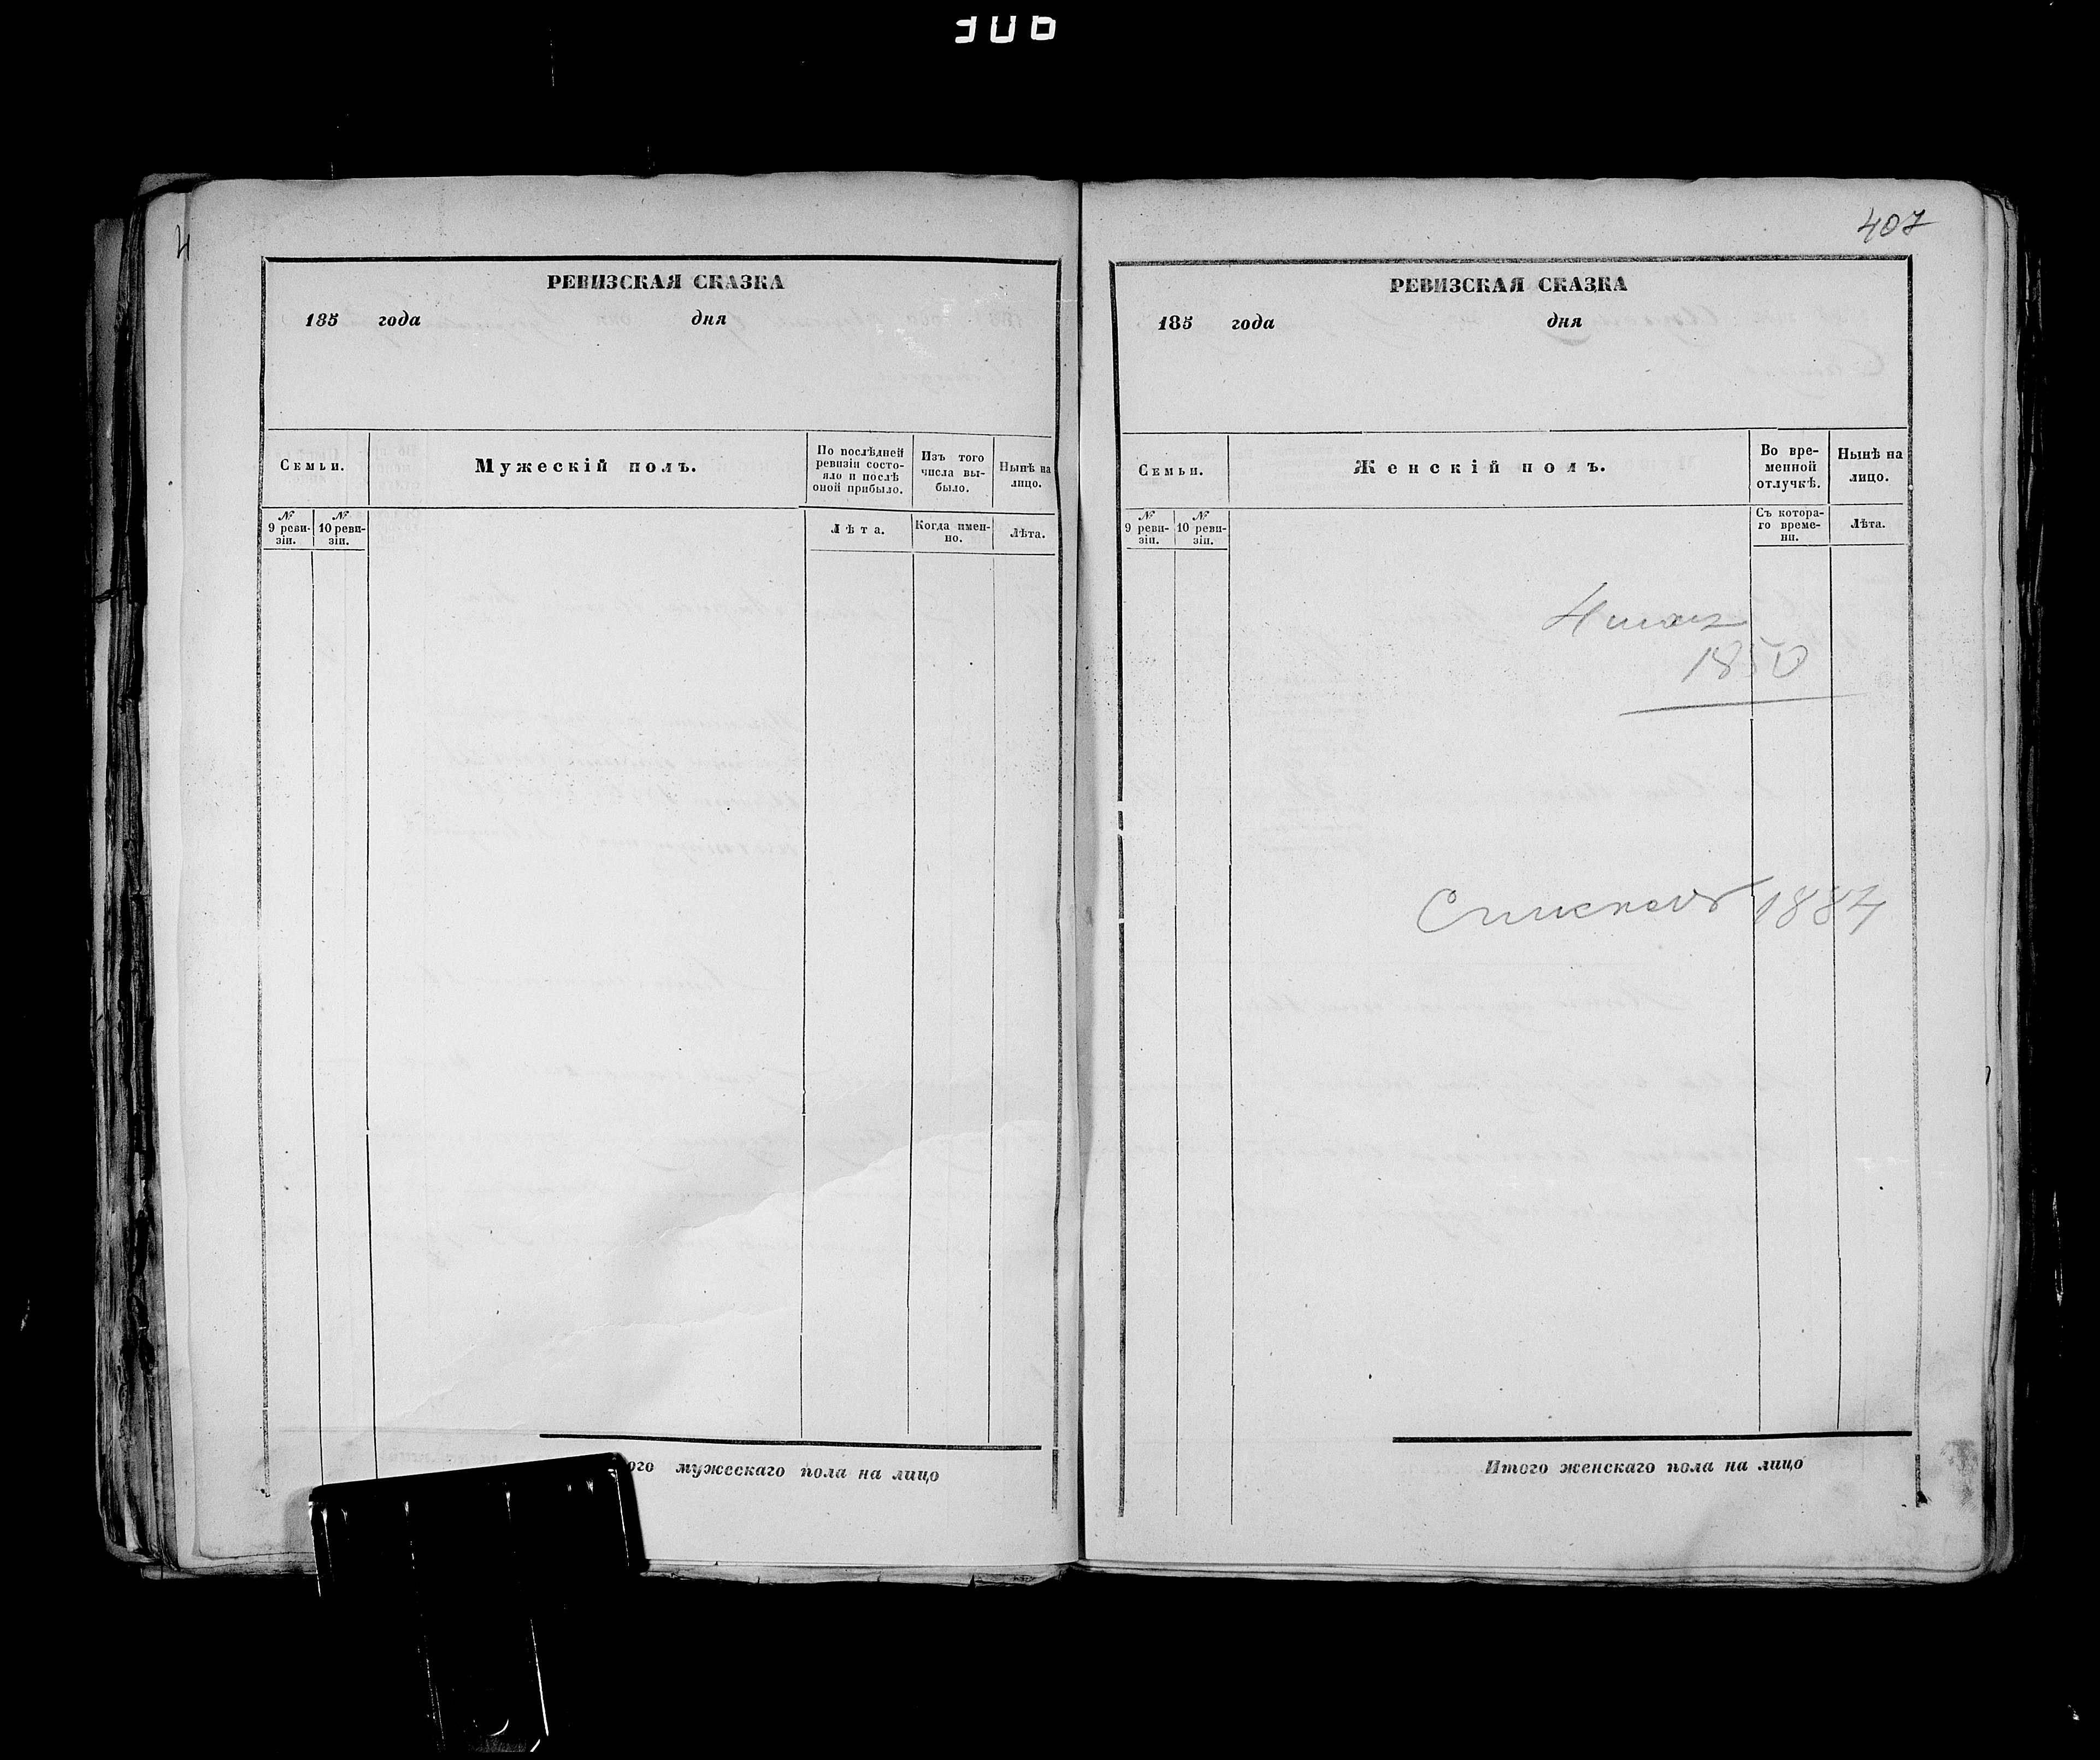 306
407
РЕВИЗСКАЯ СКАЗКА
185 года дня
Семьи.
Мужескій полъ.
По послѣдней ревизіи состо-
яло и послѣ
оной прибыло.
Изъ того
числа вы-
было.
Нынѣ на
лицо.
№
9 реви-
зіи.
№
10 реви-
зіи.
Лѣта.
Когда имен-
но.
Лѣта.
ого мужескаго пола на лицо
РЕВИЗСКАЯ СКАЗКА
185 года дня
Семьи.
Женскій полъ.
Во вре-
менной
отлучкѣ.
Нынѣ на
лицо.
№
9 реви-
зіи.
№
10 реви-
зіи.
Съ котора-
го време-
ни.
Лѣта.
1850
1884
Итого женскаго пола на лицо